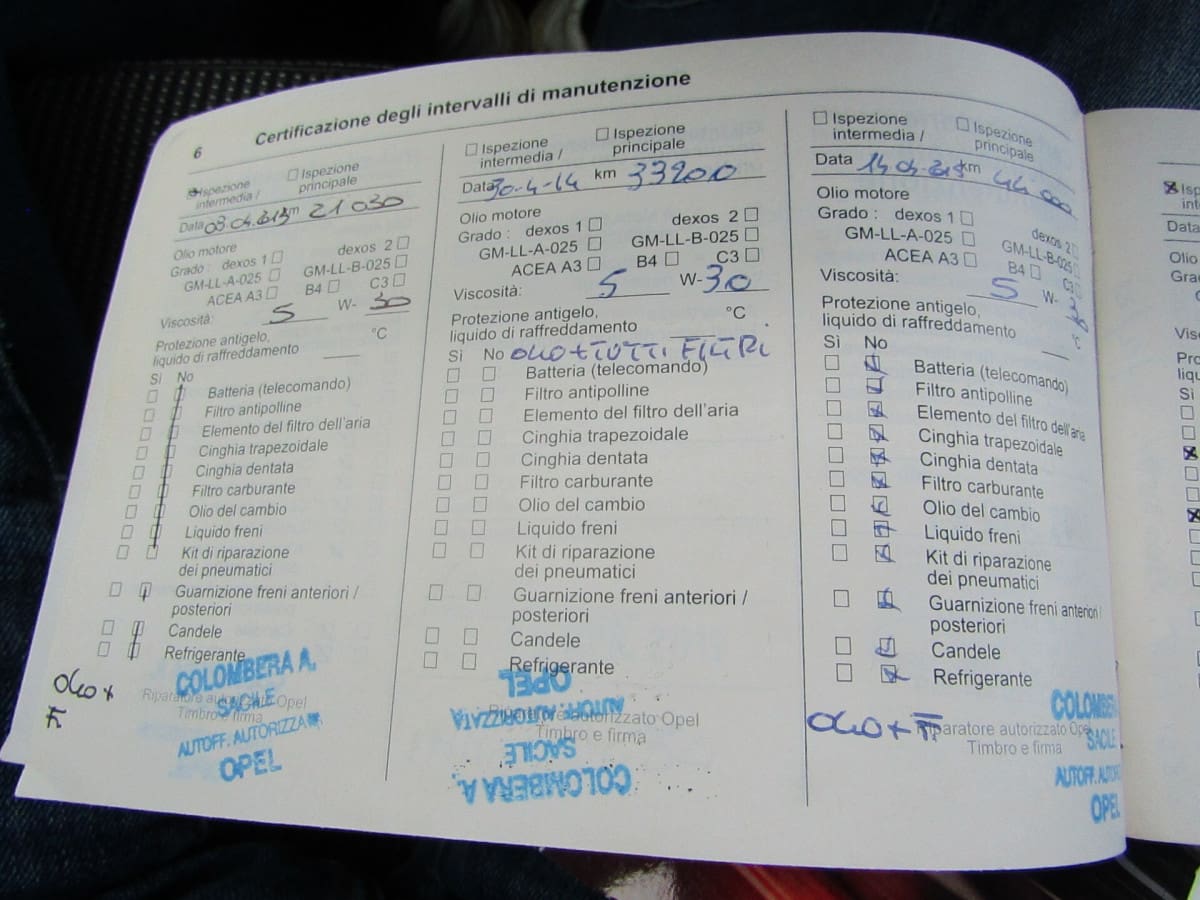 6
Certificazione degli intervalli di manutenzione
Ispezione intermedia /
Ispezione principale
Data 03.04.2013 km 21 030
Olio motore
Grado : dexos 1 dexos 2
GM-LL-A-025 GM-LL-B-025
ACEA A3 B4 C3
Viscosità: 5 W- 30
Protezione antigelo,
liquido di raffreddamento °C
Sì No
Batteria (telecomando)
Filtro antipolline
Elemento del filtro dell'aria
Cinghia trapezoidale
Cinghia dentata
Filtro carburante
Olio del cambio
Liquido freni
Kit di riparazione
dei pneumatici
Guarnizione freni anteriori /
posteriori
Candele
Refrigerante
OLIO +
Riparatore autorizzato Opel
Timbro e firma
COLOMBERA A.
SACILE
AUTOFF. AUTORIZZATA
OPEL
Ispezione intermedia /
Ispezione principale
Data 30-4-14 km 33200
Olio motore
Grado : dexos 1 dexos 2
GM-LL-A-025 GM-LL-B-025
ACEA A3 B4 C3
Viscosità: 5 W- 30
Protezione antigelo,
liquido di raffreddamento °C
Sì No OLIO + TUTTI FILTRI
Batteria (telecomando)
Filtro antipolline
Elemento del filtro dell'aria
Cinghia trapezoidale
Cinghia dentata
Filtro carburante
Olio del cambio
Liquido freni
Kit di riparazione
dei pneumatici
Guarnizione freni anteriori /
posteriori
Candele
Refrigerante
Riparatore autorizzato Opel
Timbro e firma
COLOMBERA A.
SACILE
AUTOFF. AUTORIZZATA
OPEL
Ispezione intermedia /
Ispezione principale
Data km 44 000
Olio motore
Grado : dexos 1 dexos 2
GM-LL-A-025 GM-LL-B-025
ACEA A3 B4 C3
Viscosità: 5 W- 30
Protezione antigelo,
liquido di raffreddamento °C
Sì No
Batteria (telecomando)
Filtro antipolline
Elemento del filtro dell'aria
Cinghia trapezoidale
Cinghia dentata
Filtro carburante
Olio del cambio
Liquido freni
Kit di riparazione
dei pneumatici
Guarnizione freni anteriori /
posteriori
Candele
Refrigerante
OLIO +
Riparatore autorizzato Opel
Timbro e firma
COLOMBERA
SACILE
AUTOFF. AUTOR
OPEL
Isp
int
Data
Olio
Gra
Visc
Pro
liqu
Sì